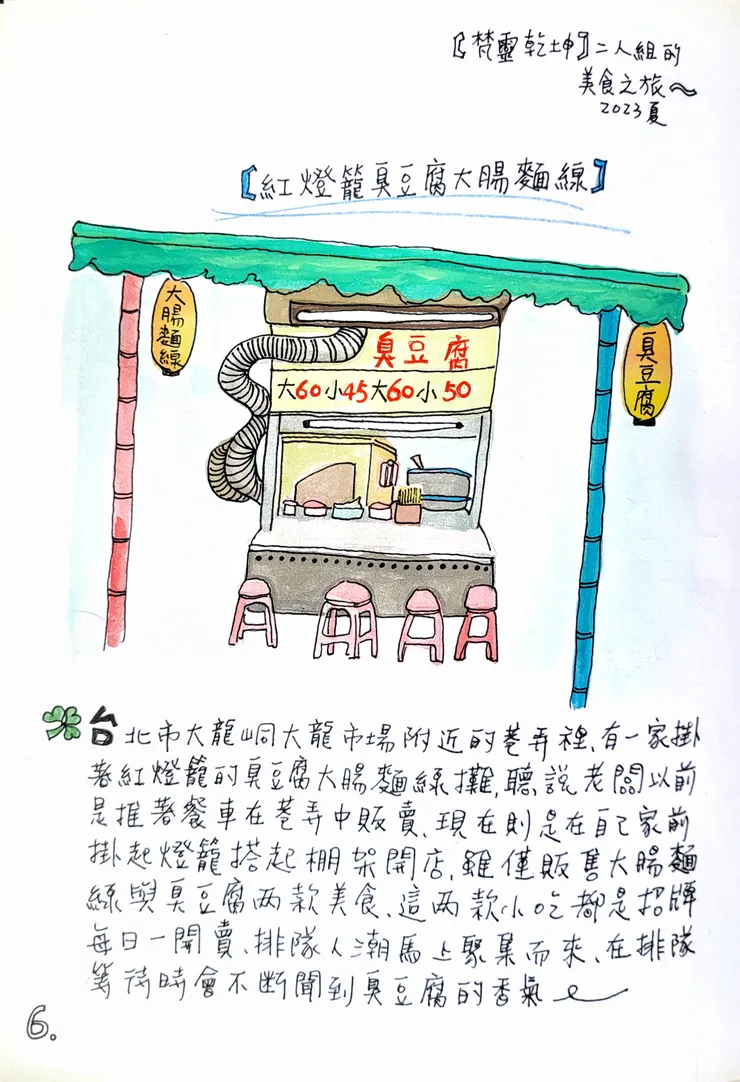 〖梵靈乾坤〗二人組的
美食之旅～
2023夏
【紅燈籠臭豆腐大腸麵線】
大腸麵線
臭豆腐
大60小45大60小50
臭豆腐
台北市大龍峒大龍市場附近的巷弄裡、有一家掛
著紅燈籠的臭豆腐大腸麵線攤,聽說老闆以前
是推著餐車在巷弄中販賣、現在則是在自己家前
掛起燈籠搭起棚架開店、雖僅販售大腸麵
線與臭豆腐两款美食、這两款小吃都是招牌
每日一開賣、排隊人潮馬上聚集而來、在排隊
等待時會不斷聞到臭豆腐的香氣～
6.